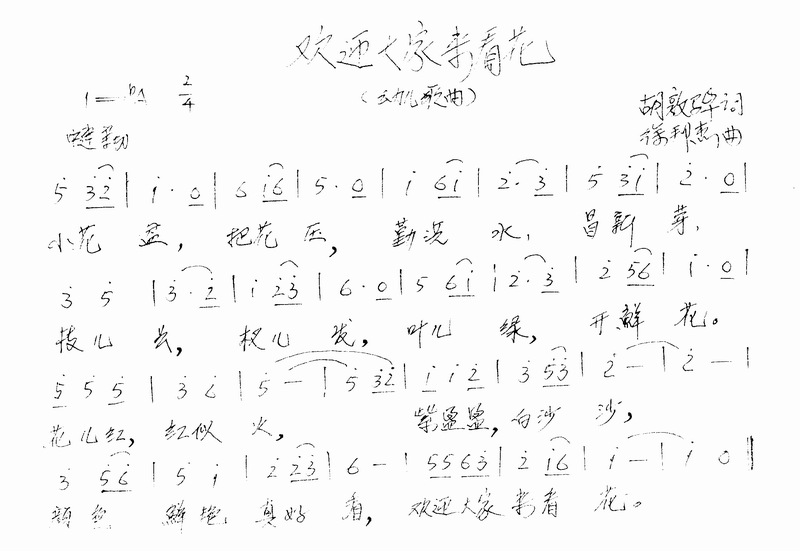 欢迎大家来看花
1=ᵇA 2/4
(幼儿歌曲)
胡敦骅词
徐邦杰曲
5 32 | 1·0 | 6 16 | 5·0 | 1 61 | 2·3 | 5 31 | 2·0 |
小花盆，把花压，勤浇水，冒新芽，
3 5 | 3·2 | 1 23 | 6·0 | 5 61 | 2·3 | 2 56 | 1·0 |
枝儿长，杈儿发，叶儿绿，开鲜花。
5 5 5 | 3 6 | 5 — | 5 32 | 1 1 2 | 3 53 | 2 — | 2 — |
花儿红，红似火，紫盈盈，白沙沙，
3 56 | 5 1 | 2 23 | 6 — | 55 63 | 2 16 | 1 — | 1 0 ‖
颜色鲜艳真好看，欢迎大家来看花。